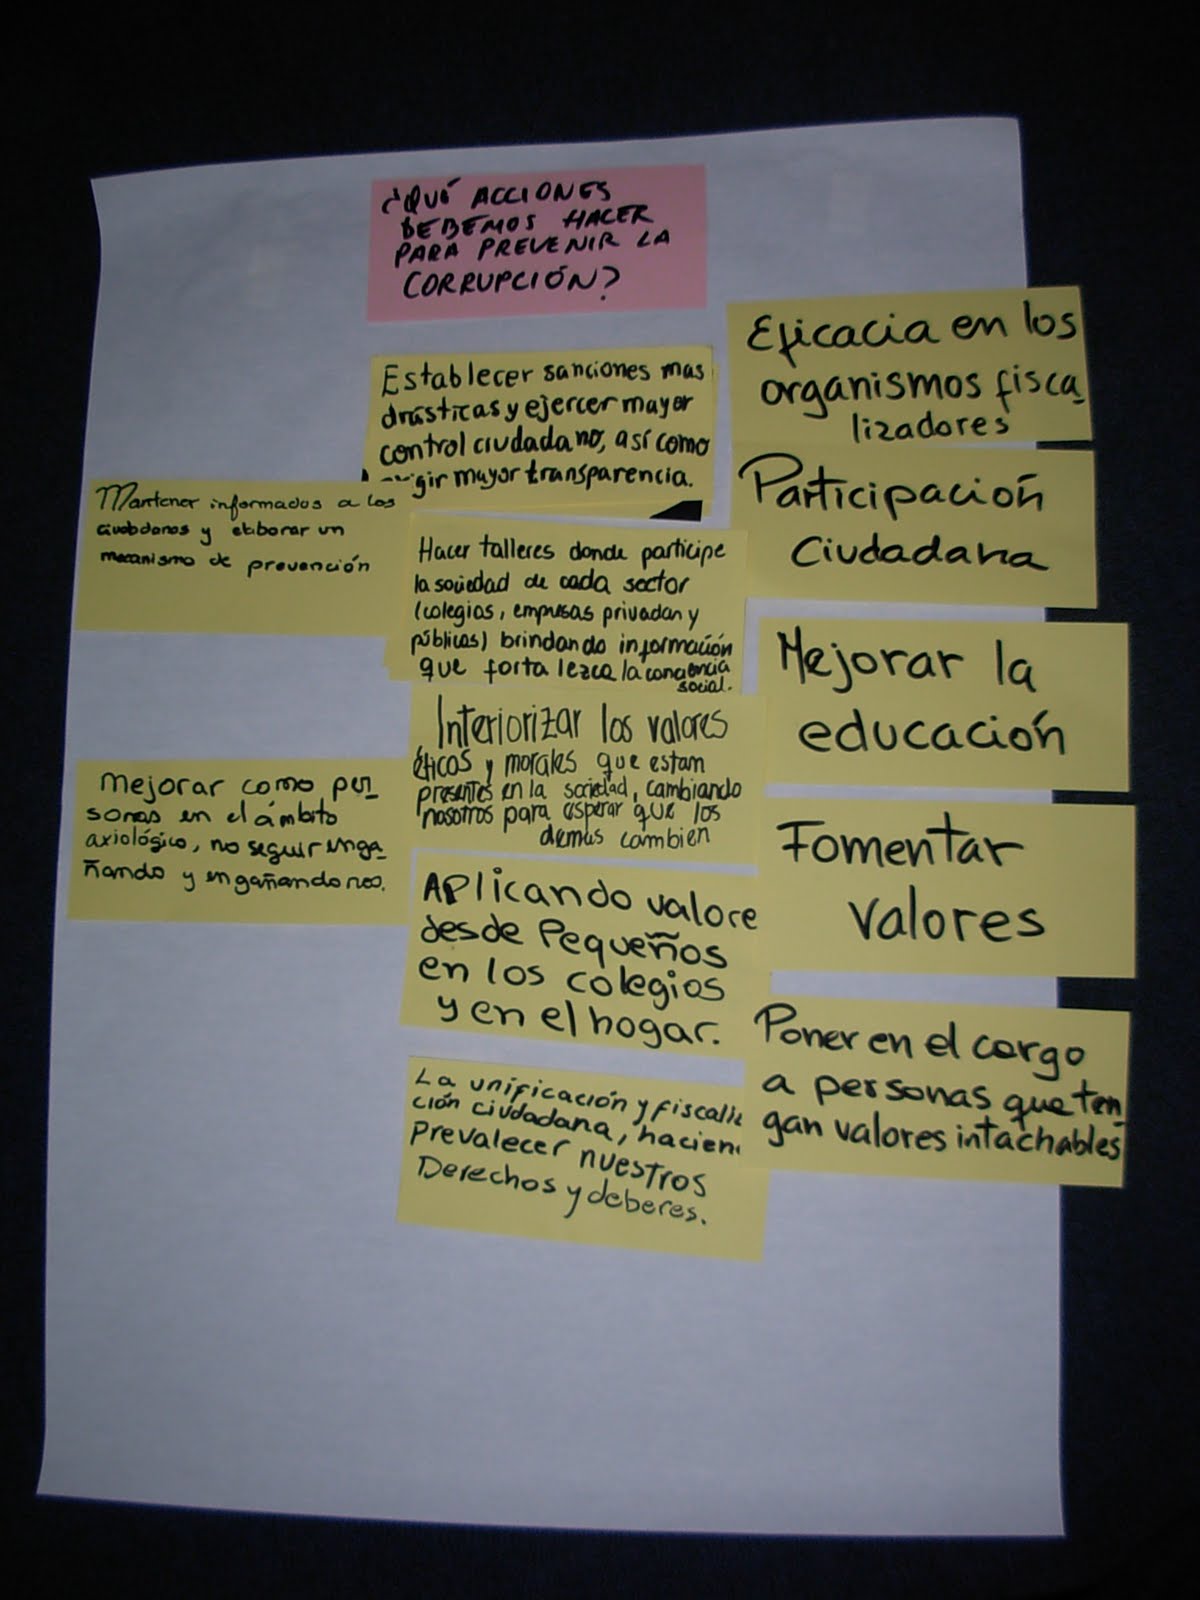 ¿QUÉ ACCIONES
DEBEMOS HACER
PARA PREVENIR LA
CORRUPCIÓN?
Establecer sanciones mas
drásticas y ejercer mayor
control ciudadano, así como
mayor transparencia.
Mantener informados a los
ciudadanos y elaborar un
mecanismo de prevención
Hacer talleres donde participe
la sociedad de cada sector
(colegios, empresas privadas y
públicas) brindando información
que fortalezca la conciencia
social.
Interiorizar los valores
éticos y morales que estam
presentes en la sociedad, cambiando
nosotros para esperar que los
demas cambien
Mejorar como per
sonas en el ámbito
axiológico, no seguir enga
ñando y engañandonos.
Aplicando valore
desde Pequeños
en los colegios
y en el hogar.
La unificación y fiscali
ción ciudadana, hacien
prevalecer nuestros
Derechos y deberes.
Eficacia en los
organismos fisca
lizadores
Participación
Ciudadana
Mejorar la
educación
Fomentar
Valores
Poner en el cargo
a personas que ten
gan valores intachables